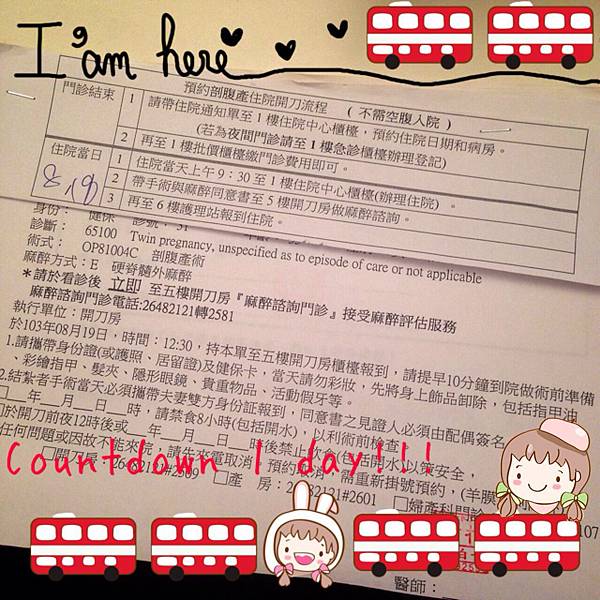 I'am here
預約剖腹產住院開刀流程 (不需空腹入院)
門診結束
1 請帶住院通知單至1樓住院中心櫃檯,預約住院日期和病房。
(若為夜間門診請至1樓急診櫃檯辦理登記)
2 再至1樓批價櫃檯繳門診費用即可。
住院當日
8/19
1 住院當天上午9:30至1樓住院中心櫃檯(辦理住院)。
2 帶手術與麻醉同意書至5樓開刀房做麻醉諮詢。
3 再至6樓護理站報到住院。
身份: 健保
診斷: 65100 Twin pregnancy, unspecified as to episode of care or not applicable
術式: OP81004C 剖腹產術
麻醉方式:E 硬脊髓外麻醉
*請於看診後 立即 至五樓開刀房『麻醉諮詢門診』接受麻醉評估服務
麻醉諮詢門診電話:26482121轉2581
執行單位:開刀房
於103年08月19日,時間:12:30,持本單至五樓開刀房櫃檯報到,請提早10分鐘到院做術前準備
1.請攜帶身份證(或護照、居留證)及健保卡,當天請勿彩妝,先將身上飾品卸除,包括指甲油
、彩繪指甲、髮夾、隱形眼鏡、貴重物品、活動假牙等。
2.結紮者手術當天必須攜帶夫妻雙方身份證報到,同意書之見證人必須由配偶簽名
□__年__月__日__時,請禁食8小時(包括開水),以利術前檢查
□於開刀前夜12時後或__年__月__日__時後禁止飲食(包括開水)以策安全,
任何問題或因故不能來院,請先來電取消預約,需重新掛號預約,(羊膜
□開刀房:26482121#2509 □產 房:26482121#2601 □婦產科門診
Countdown 1 day!!!
107
醫師: